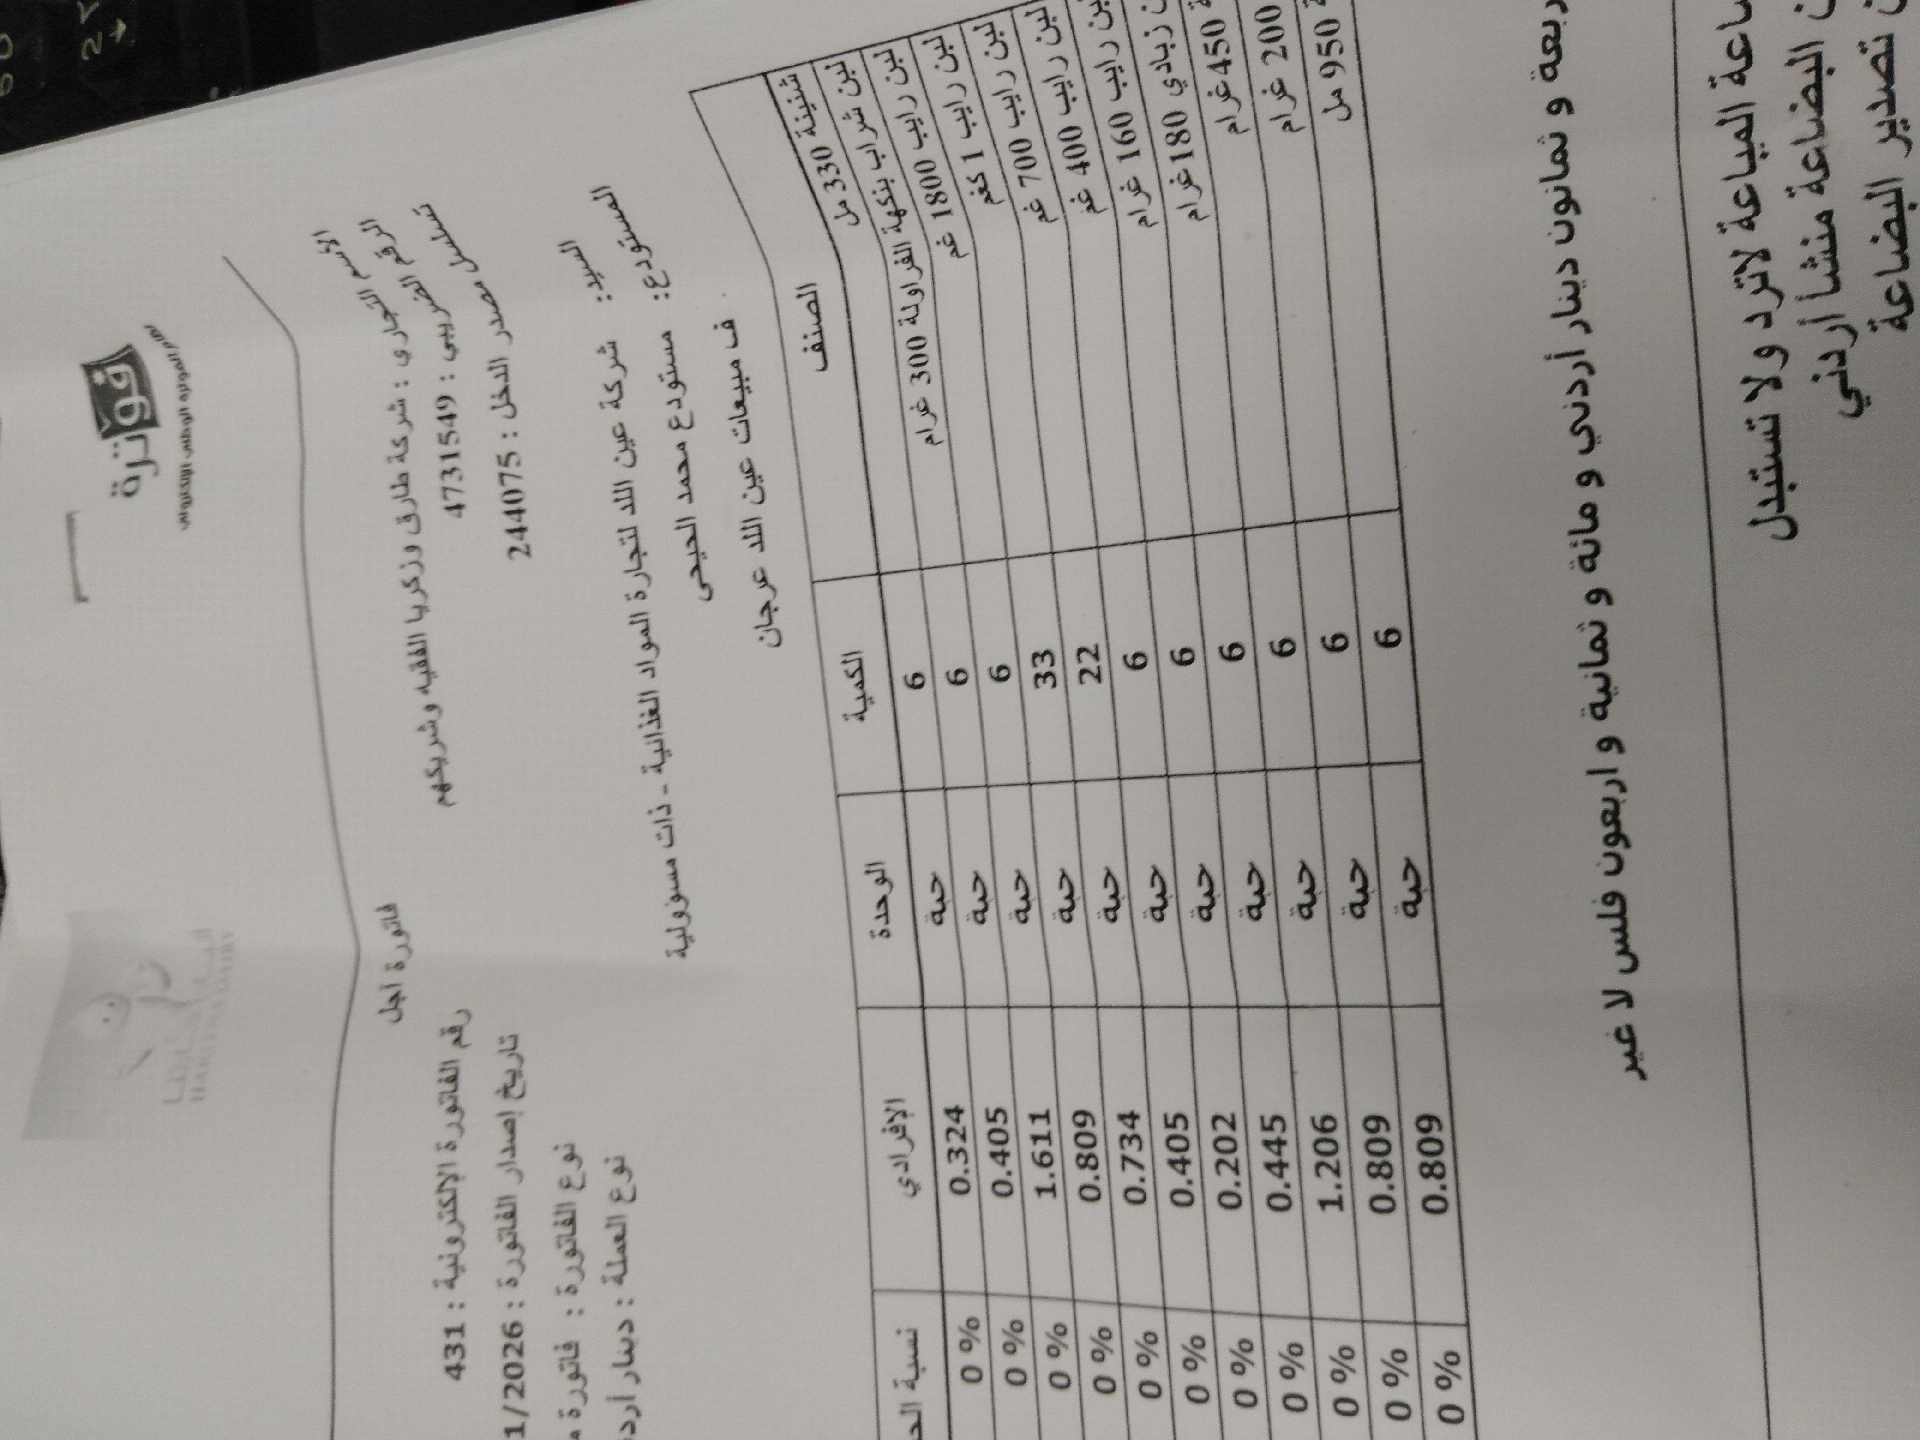 فوترة
نظام الفوترة الوطني الإلكتروني
HAMMOUDEH DAIRY
فاتورة اجل
الاسم التجاري : شركة طارق وزكريا الفقيه وشريكهم
رقم الفاتورة الإلكترونية : 431
الرقم الضريبي : 4731549
تاريخ إصدار الفاتورة : 1/2026
تسلسل مصدر الدخل : 244075
نوع الفاتورة : فاتورة
نوع العملة : دينار
السيد: شركة عين اللد لتجارة المواد الغذائية - ذات مسؤولية
المستودع: مستودع محمد الحيحي
ف مبيعات عين اللد عرجان
الصنف الكمية الوحدة الإفرادي نسبة
شنينة 330 مل 6 حبة 0.324 0 %
لبن شراب بنكهة الفراولة 300 غرام 6 حبة 0.405 0 %
لبن رايب 1800 غم 6 حبة 1.611 0 %
لبن رايب 1 كغم 33 حبة 0.809 0 %
لبن رايب 700 غم 22 حبة 0.734 0 %
لبن رايب 400 غم 6 حبة 0.405 0 %
لبن رايب 160 غرام 6 حبة 0.202 0 %
زبادي 180 غرام 6 حبة 0.445 0 %
450 غرام 6 حبة 1.206 0 %
200 غرام 6 حبة 0.809 0 %
950 مل 6 حبة 0.809 0 %
و ثمانون دينار أردني و مائة و ثمانية و اربعون فلس لا غير
المباعة لاترد ولا تستبدل
البضاعة منشأ أردني
تصدير البضاعة